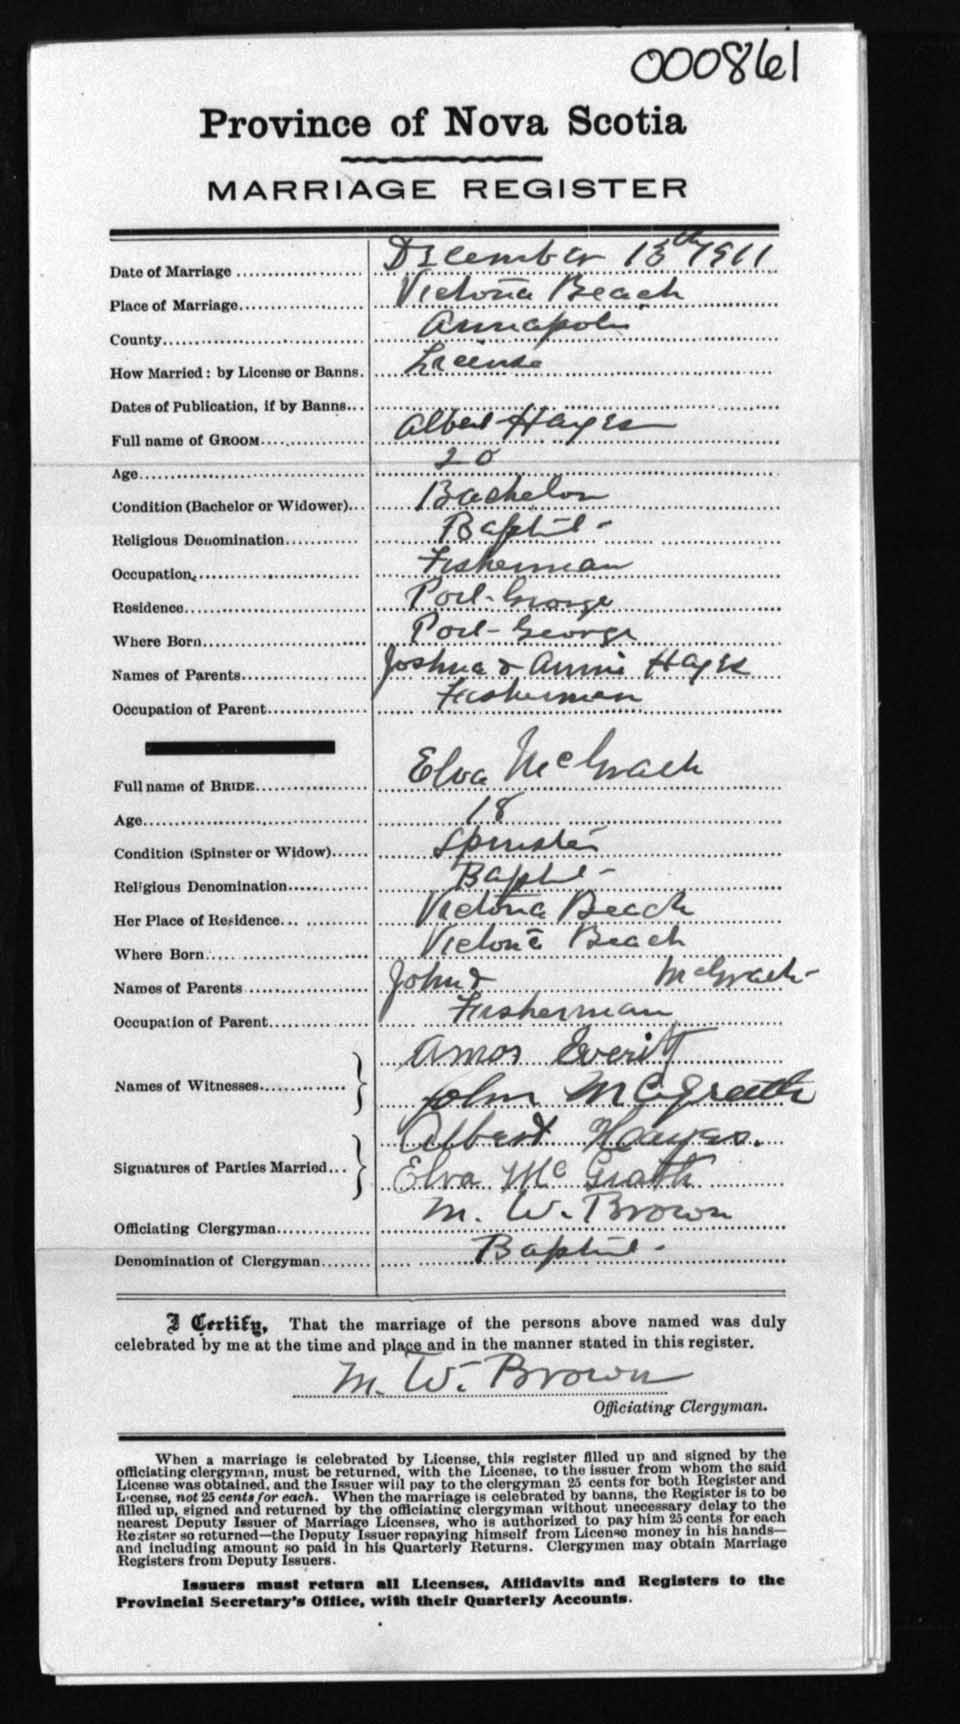 000861
Province of Nova Scotia
MARRIAGE REGISTER
Date of Marriage December 13th 1911
Place of Marriage Victoria Beach
County Annapolis
How Married: by License or Banns. License
Dates of Publication, if by Banns
Full name of GROOM Albert Hayes
Age 20
Condition (Bachelor or Widower) Bachelor
Religious Denomination Baptist
Occupation Fisherman
Residence Port George
Where Born Port George
Names of Parents Joshua & Annie Hayes
Occupation of Parent Fisherman
Full name of BRIDE Elva McGrath
Age 18
Condition (Spinster or Widow) Spinster
Religious Denomination Baptist
Her Place of Residence Victoria Beach
Where Born Victoria Beach
Names of Parents John & McGrath
Occupation of Parent Fisherman
Amos Everitt
Names of Witnesses
John McGrath
Albert Hayes.
Signatures of Parties Married
Elva McGrath
Officiating Clergyman M. W. Brown
Denomination of Clergyman Baptist
I Certify, That the marriage of the persons above named was duly
celebrated by me at the time and place and in the manner stated in this register.
M. W. Brown
Officiating Clergyman.
When a marriage is celebrated by License, this register filled up and signed by the
officiating clergyman, must be returned, with the License, to the issuer from whom the said
License was obtained, and the Issuer will pay to the clergyman 25 cents for both Register and
License, not 25 cents for each. When the marriage is celebrated by banns, the Register is to be
filled up, signed and returned by the officiating clergyman without unnecessary delay to the
nearest Deputy Issuer of Marriage Licenses, who is authorized to pay him 25 cents for each
Register so returned—the Deputy Issuer repaying himself from License money in his hands—
and including amount so paid in his Quarterly Returns. Clergymen may obtain Marriage
Registers from Deputy Issuers.
Issuers must return all Licenses, Affidavits and Registers to the
Provincial Secretary's Office, with their Quarterly Accounts.